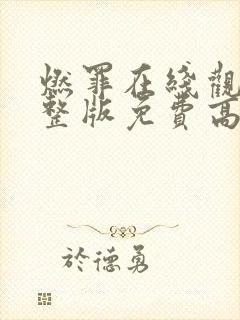 燃罪在綫觀
整版免費高
於德勇